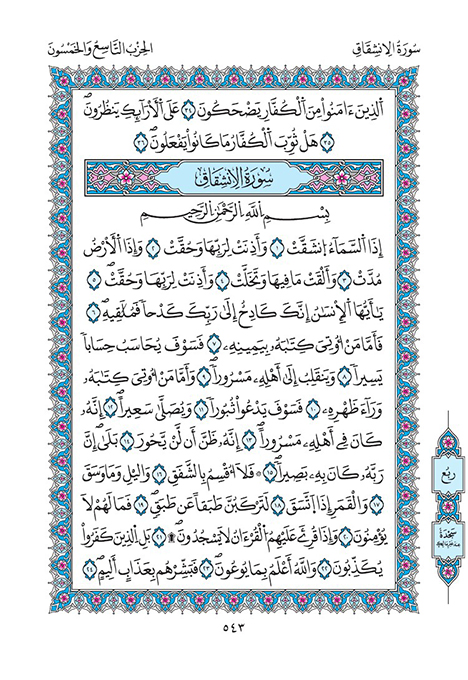 سُورَةُ الِانشِقَاقِ
الحِزْبُ التَّاسِعُ وَالخَمْسُونَ
اَ۬لذِينَ ءَامَنُواْ مِنَ اَ۬لْكُفَّارِ يَضْحَكُونَ ٣٤ عَلَى اَ۬لْأَرَآئِكِ يَنظُرُونَ
٣٥ هَلْ ثُوِّبَ اَ۬لْكُفَّارُ مَا كَانُواْ يَفْعَلُونَ ٣٦
سُورَةُ الِانشِقَاقِ
بِسْمِ اللَّهِ الرَّحْمَٰنِ الرَّحِيمِ
إِذَا اَ۬لسَّمَآءُ اُ۪نشَقَّتْ ١ وَأَذِنَتْ لِرَبِّهَا وَحُقَّتْ ٢ وَإِذَا اَ۬لْأَرْضُ
مُدَّتْ ٣ وَأَلْقَتْ مَا فِيهَا وَتَخَلَّتْ ٤ وَأَذِنَتْ لِرَبِّهَا وَحُقَّتْ ٥
يَٰٓأَيُّهَا اَ۬لْإِنسَٰنُ إِنَّكَ كَادِحٌ إِلَىٰ رَبِّكَ كَدْحاً فَمُلَٰقِيهِ ٦
فَأَمَّا مَنْ أُوتِيَ كِتَٰبَهُۥ بِيَمِينِهِۦ ٧ فَسَوْفَ يُحَاسَبُ حِسَاباً
يَسِيراً ٨ وَيَنقَلِبُ إِلَىٰٓ أَهْلِهِۦ مَسْرُوراً ٩ وَأَمَّا مَنْ أُوتِيَ كِتَٰبَهُۥ
وَرَآءَ ظَهْرِهِۦ ١٠ فَسَوْفَ يَدْعُواْ ثُبُوراً ١١ وَيُصَلَّىٰ سَعِيراً ١٢ إِنَّهُۥ
كَانَ فِي أَهْلِهِۦ مَسْرُوراً ١٣ إِنَّهُۥ ظَنَّ أَن لَّنْ يَّحُورَ ١٤ بَلَىٰٓ إِنَّ
رَبَّهُۥ كَانَ بِهِۦ بَصِيراً ١٥ فَلَآ أُقْسِمُ بِالشَّفَقِ ١٦ وَاليْلِ وَمَا وَسَقَ
١٧ وَالْقَمَرِ إِذَا اَ۪تَّسَقَ ١٨ لَتَرْكَبُنَّ طَبَقاً عَن طَبَقٍ ١٩ فَمَا لَهُمْ لَا
يُؤْمِنُونَ ٢٠ وَإِذَا قُرِئَ عَلَيْهِمُ اُ۬لْقُرْءَانُ لَا يَسْجُدُونَ ٢١ بَلِ اِ۬لذِينَ كَفَرُواْ
يُكَذِّبُونَ ٢٢ وَاللَّهُ أَعْلَمُ بِمَا يُوعُونَ ٢٣ فَبَشِّرْهُم بِعَذَابٍ أَلِيمٍ ٢٤
ربع
سَجْدَة
٥٤٣